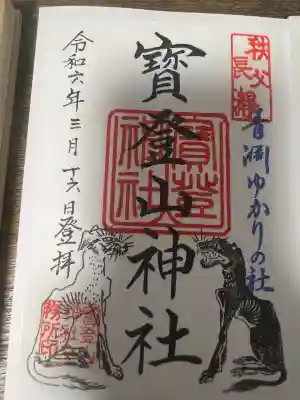 秩父
長瀞
青淵ゆかりの社
寶登山神社
令和六年三月十六日登拝